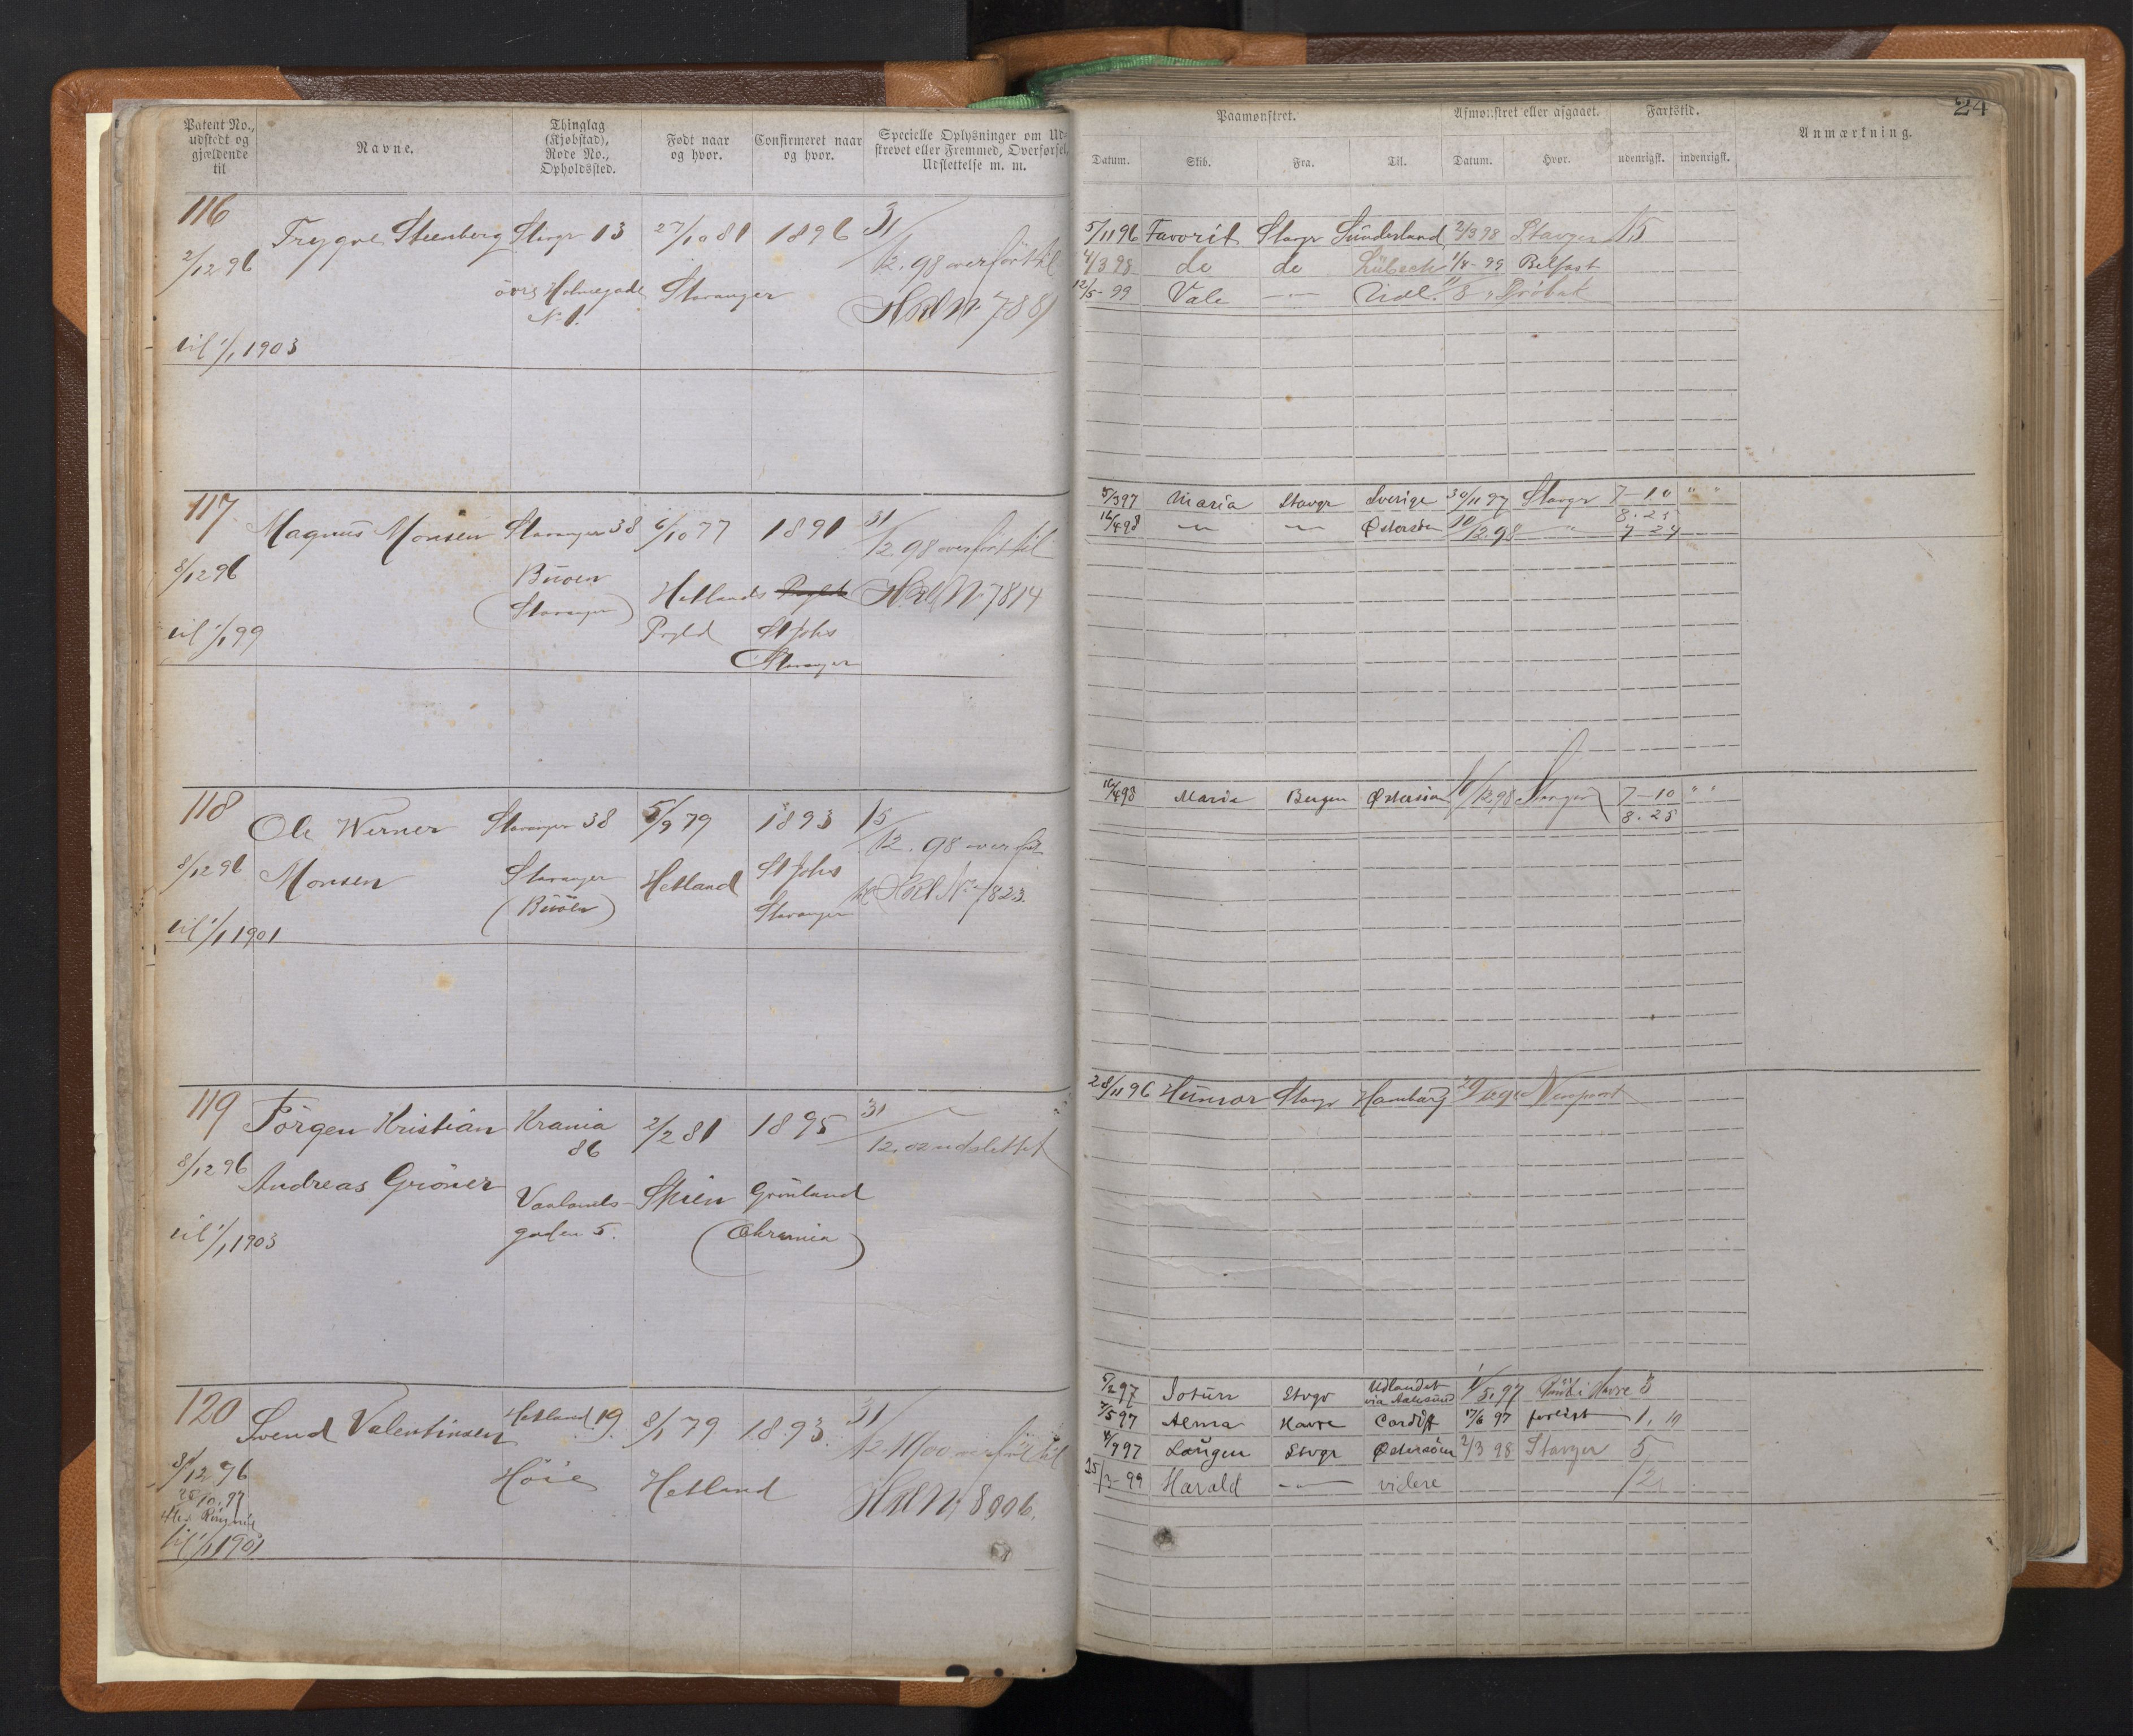 Patent No., udstedt og gjældende til
Navne.
Thinglag (Kjøbstad), Rode No., Opholdssted.
Født naar og hvor.
Confirmeret naar og hvor.
Specielle Oplysninger om Ud-
strevet eller Fremmed, Overførsel,
Udslettelse m. m.
116
Trygve Steenberg Stavgr 13 27/10 81 1896 31/12.98 overført til
2/12 96
övre Holmegade Stavanger
No 1.
Hovl No 7881
til 1/1 1903
117
Magnus Monsen Stavanger 38 6/10 77 1891 31/12.98 overført til
8/12 96
Buøen
(Stavanger)
Hetlands
Hovl No 7814
Prgld St Johs
til 1/1 99
Stavanger
118
Ole Werner Stavanger 38 5/9 79 1893 15/12.98 overført
8/12 96
Monsen Stavanger Hetland St Johs
(Buöen) Stavanger
til Hovl No 7823.
til 1/1 1901
119
Jörgen Kristian Krania 2/2 81 1895 31/12.02 udslettet
86
8/12 96
Andreas Gröner Vaalands- Skien Grönland
gaden 5. (Chrania)
til 1/1 1903
120
Svend Valentinsen Hetland 19. 8/1 79 1893. 31/12 1900 overført til
8/12 96
Höie Hetland
25/10.97
Hovl No 8006.
til 1/1 1901
24
Paamønstret.
Afmønstret eller afgaaet.
Fartstid.
Anmærkning.
Datum. Skib. Fra. Til. Datum. Hvor. udenrigsk. indenrigsk.
5/11 96 Favorit Stavgr Sunderland 2/3 98 Stavger 15
4/3 98 do do Lübeck 1/4-99 Belfast
12/5-99 Vale — Udl. 11/8 " Dröbak
5/3 97 Maria Stavgr Sverige 30/11 97 Stavgr 7-10 " "
8.25
16/4 98 — — Østersöen 10/12 98 " 7 24
16/4 98 Maria Bergen Østersöen 10/12 98 Stavanger 7-10 " "
8.25
28/11 96 Hunsor Stavgr Hamburg Newport
5/2 97 Jotun Stvgr Udlandet
via Aalesund 1/5.97 Havre 3
7/5 97 Alma Havre Cardiff 17/6 97 forlist 1, 10
4/9 97 Laugen Stvgr Østersöen 2/3 98 Stavger 5
25/3-99 Harald — videre 12